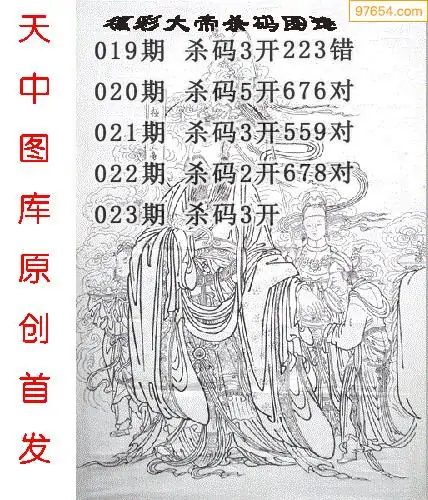 97654.com
福彩大帝杀码图迷
019期 杀码3开223错
020期 杀码5开676对
021期 杀码3开559对
022期 杀码2开678对
023期 杀码3开
天中图库原创首发